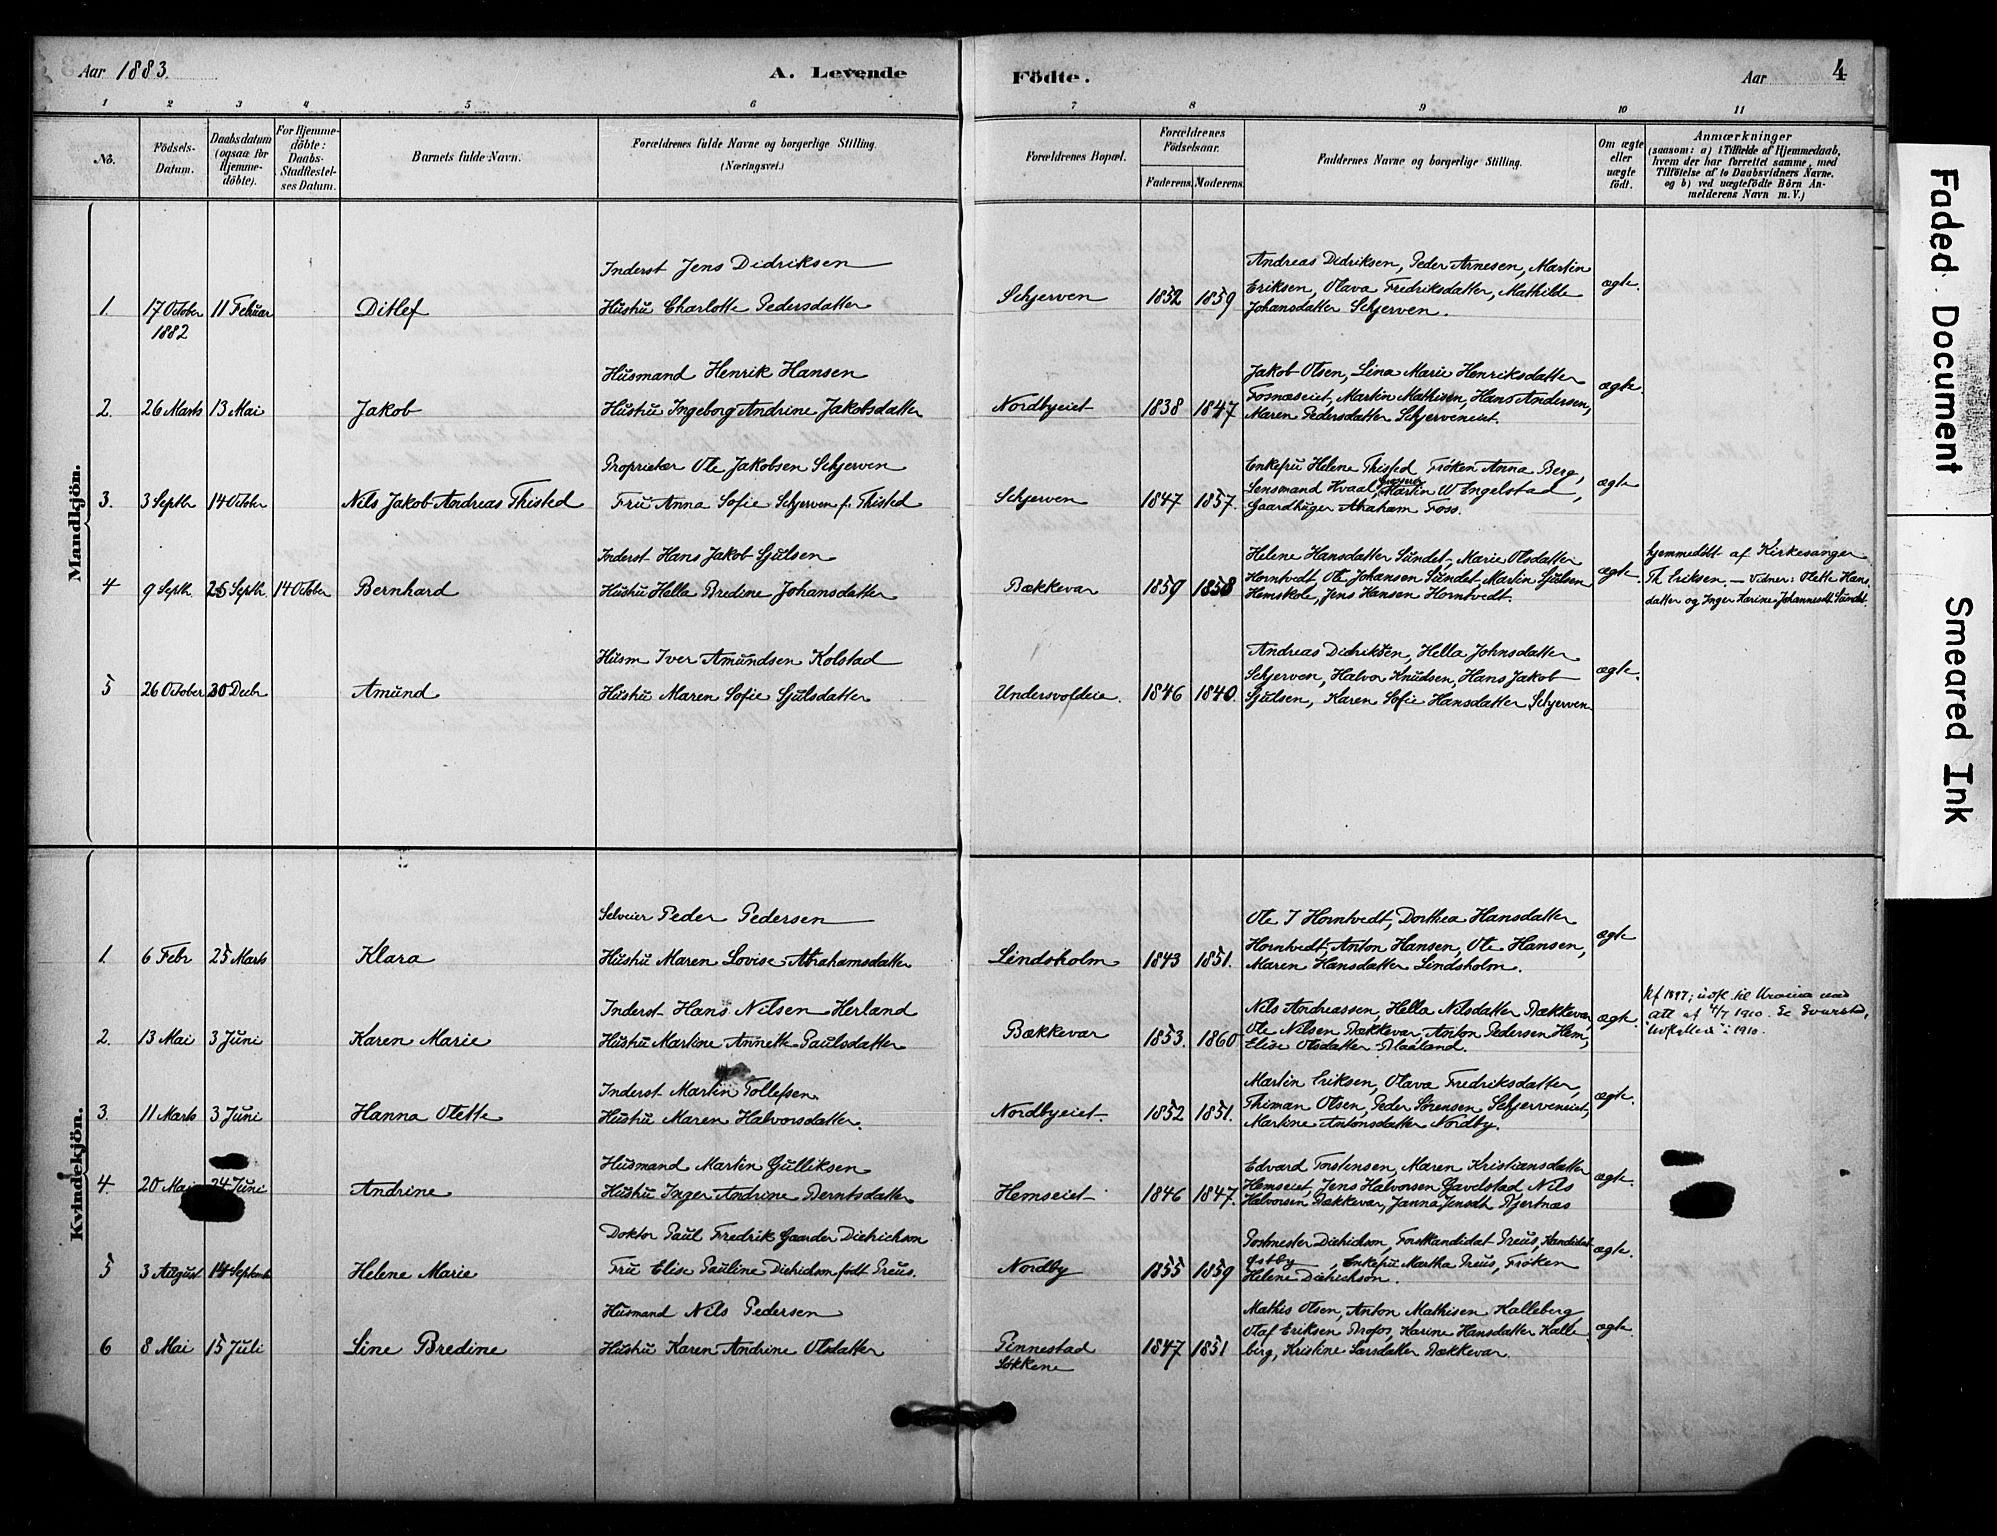 Aar 1883.
A. Levende
Födte.
Aar
4
1 2 3 4 5 6 7 8 9 10 11
No.
Födsels-
Datum.
Daabsdatum
(ogsaa for
Hjemme-
döbte).
For Hjemme-
döbte:
Daabs-
Stadfæstel-
ses Datum.
Barnets fulde Navn.
Forældrenes fulde Navne og borgerlige Stilling.
(Næringsvei.)
Forældrenes Bopæl.
Forældrenes
Födselsaar.
Faderens.
Moderens.
Faddernes Navne og borgerlige Stilling.
Om ægte
eller
uægte
födt.
Anmærkninger
(saasom: a) i Tilfælde af Hjemmedaab,
hvem der har forrettet samme, med
Tilföielse af to Daabsvidners Navne.
og b) ved uægtefödte Börn An-
melderens Navn m. V.)
Mandkjön.
1. 17 October 1882 11 Februar
Ditlef
Inderst Jens Didriksen
Hustru Charlotte Pedersdatter
Schjerven 1852 1859
Andreas Didriksen, Peder Arnesen, Martin
Eriksen, Olava Fredriksdatter, Mathilde
Johansdatter Schjerven.
ægte.
2. 26 Marts 13 Mai
Jakob
Husmand Henrik Hansen
Hustru Ingeborg Andrine Jakobsdatter
Nordbyeiet 1838 1847
Jakob Olsen, Lina Marie Henriksdatter
Fosnæseiet, Martin Mathisen, Hans Andersen,
Maren Pedersdatter Schjerveneiet.
ægte.
3. 3 Septbr 14 October
Nils Jakob Andreas Thisted
Proprietær Ole Jakobsen Schjerven
Fru Anna Sofie Schjerven f. Thisted
Schjerven 1847 1857.
Enkefru Helene Thisted Frøken Anna Berg,
Lensmand Hvaal, Martin W Engelstad,
Gaardbruger Abraham Foss.
ægte
4 9 Septbr. 25 Septbr. 14 October
Bernhard
Inderst Hans Jakob Sjulsen
Hustru Hella Bredine Johansdatter
Bækkevar 1859 1858
Helene Hansdatter Sundet, Marie Olsdatter
Horntvedt, Ole Johansen Sundet, Martin Sjulsen
Hemskole, Jens Hansen Horntvedt.
ægte.
hjemmedøbt af Kirkesanger
Th. Eriksen. — Vidner: Olette Hans
datter og Inger Karine Johannesdt. Sundet.
5 26 October 30 Decbr
Amund
Husm Iver Amundsen Kolstad
Hustru Maren Sofie Sjulsdatter
Undersvoldeie. 1846 1840.
Andreas Didriksen, Hella Johnsdatter
Schjerven, Halvor Knudsen, Hans Jakob
Sjulsen, Karen Sofie Hansdatter Schjerven
ægte.
Kvindekjön.
1. 6 Febr 25 Marts
Klara
Selveier Peder Pedersen
Hustru Maren Lovise Abrahamsdatter
Lindsholm 1843 1851.
Ole J Horntvedt, Dorthea Hansdatter
Horntvedt, Anton Hansen, Ole Hansen,
Maren Hansdatter Lindsholm.
ægte
2. 13 Mai 3 Juni
Karen Marie
Inderst Hans Nilsen Herland
Hustru Martine Annette Paulsdatter
Bækkevar 1853. 1860
Nils Andreassen, Hella Nilsdatter Bækkevar,
Ole Nilsen Bækkevar, Anton Pedersen Hem,
Elise Olsdatter Blaaland.
ægte.
Kf 1897; udfl. til
att af 4/7 1910.
"Udflytted" i 1910.
3. 11 Marts 3 Juni
Hanna Olette
Inderst Martin Tollefsen
Hustru Maren Halvorsdatter.
Nordbyeiet 1852 1851.
Martin Eriksen, Olava Fredriksdatter,
Thiman Olsen, Peder Sørensen Schjerveneiet,
Martine Antonsdatter Nordby.
ægte.
4. 20 Mai 24 Juni
Andrine
Husmand Martin Gulliksen
Hustru Inger Andrine Berntsdatter
Hemseiet 1846 1847.
Edvard Torstensen, Maren Kristiansdatter
Hemseiet, Jens Halvorsen Gavelstad, Nils
Halvorsen Bækkevar, Janna Jensdt. Bjertnæs
ægte.
5 3 August 14 September
Helene Marie
Doktor Paul Fredrik Gaarder Diedrichson
Fru Elise Pauline Diedrichson født Preus.
Nordby 1855 1859
Postmester Diedrichson, Forstkandidat Preus, Kandidat
Østby, Enkefru Martha Preus, Frøken
Helene Diedrichson.
ægte.
6 8 Mai 15 Juli
Line Bredine
Husmand Nils Pedersen
Hustru Karen Andrine Olsdatter
Pinnestad
Løkkene 1847 1851
Mathis Olsen, Anton Mathisen Kalleberg
Olaf Eriksen Brofos, Karine Hansdatter Kalle
berg, Kristine Larsdatter Bækkevar.
ægte.
Faded Document
Smeared Ink